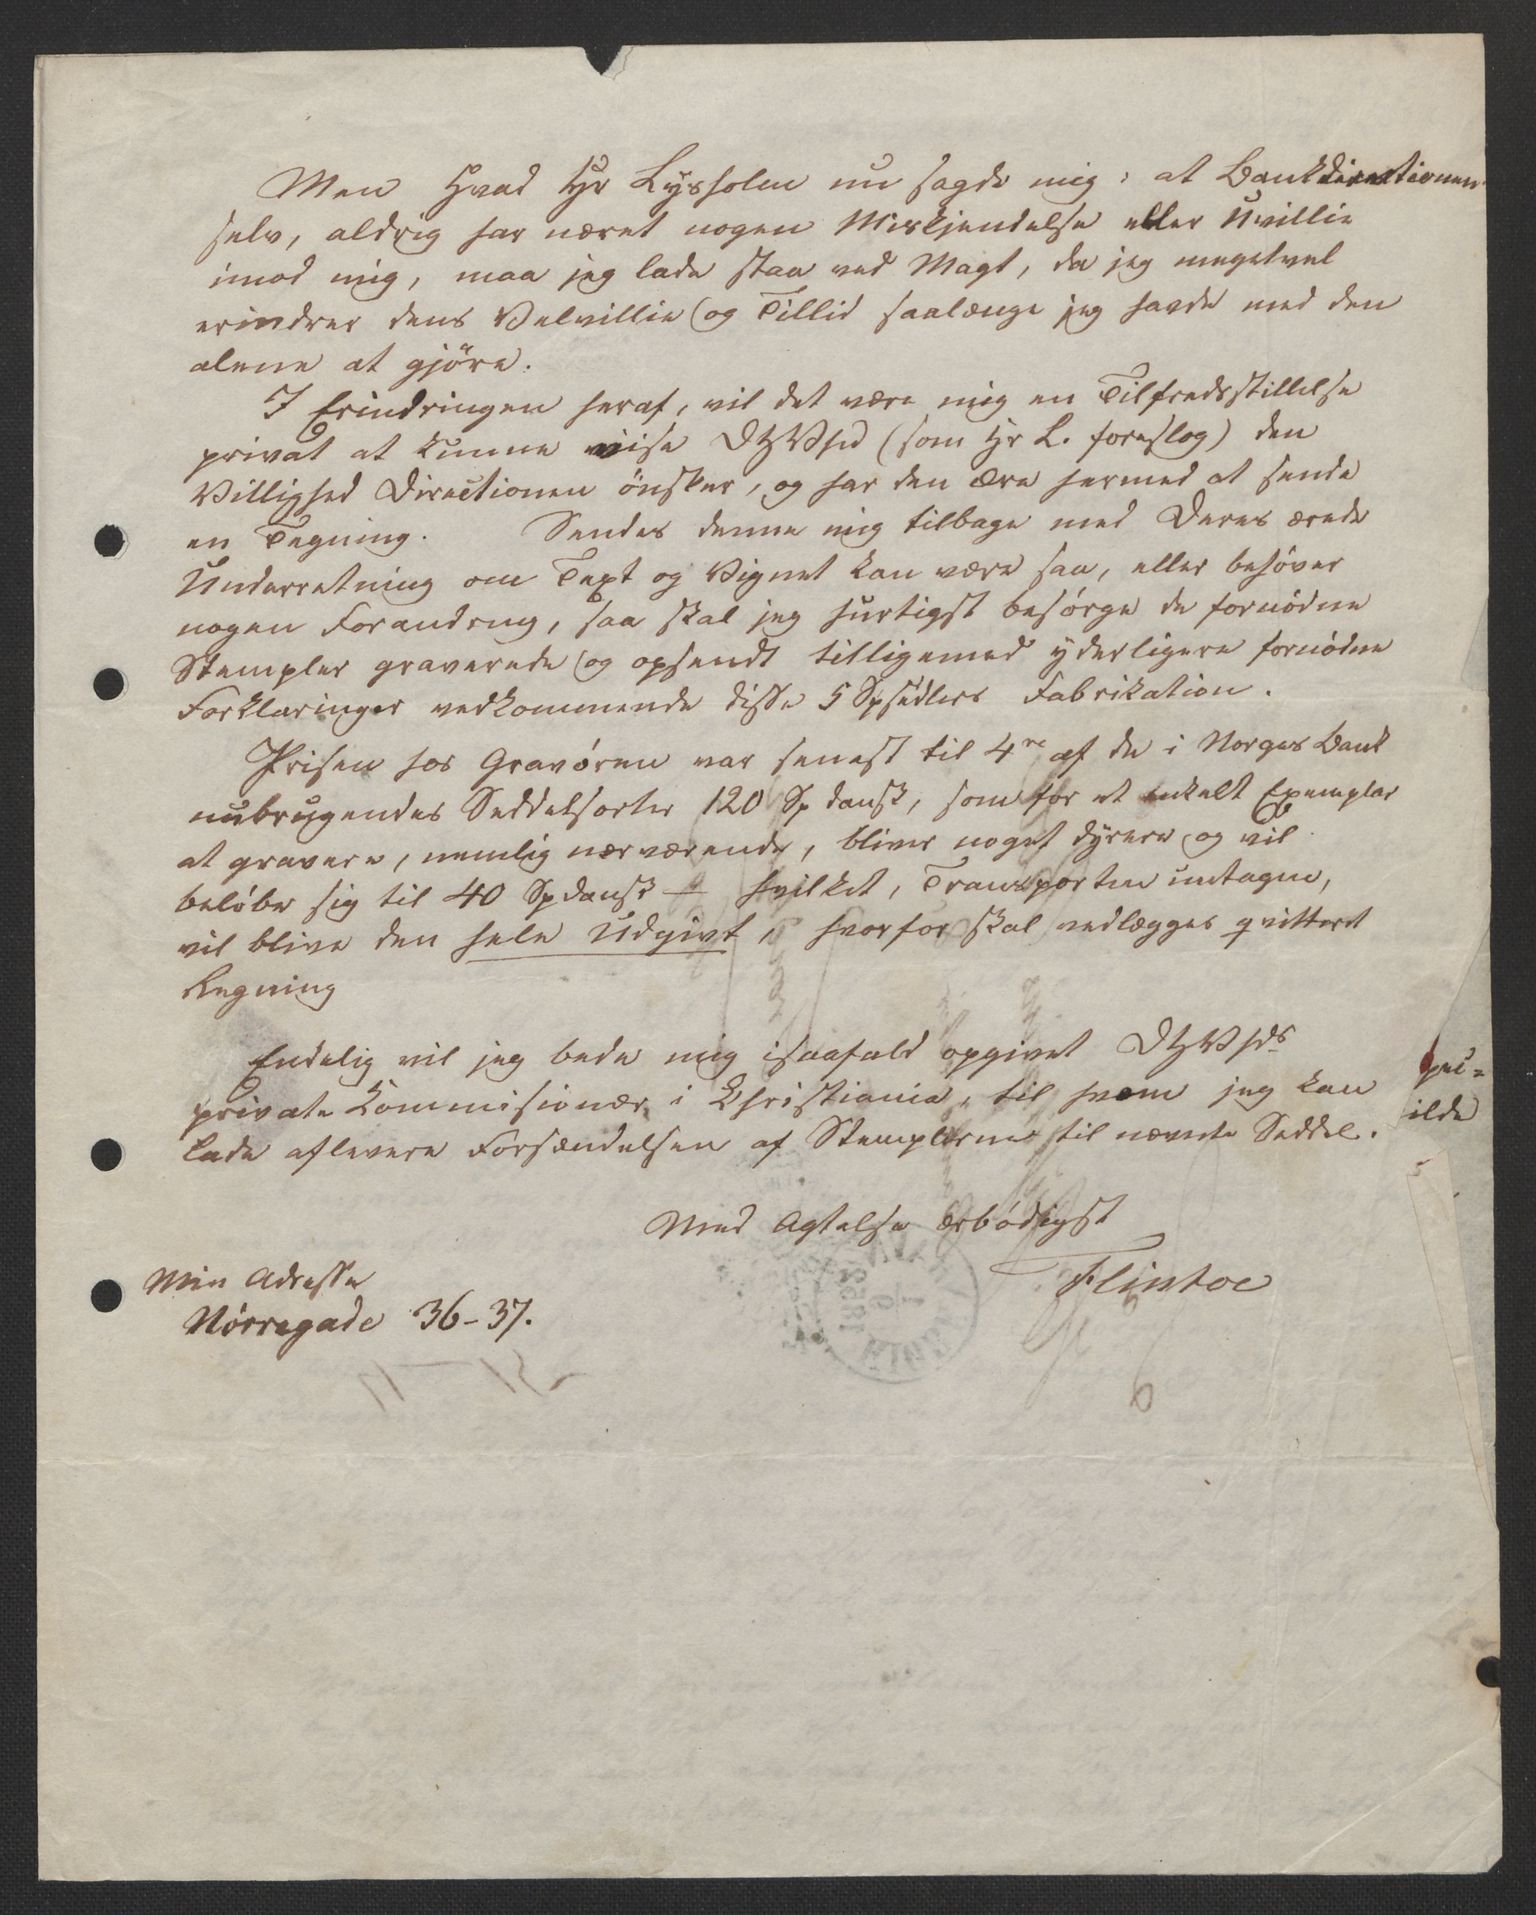 Men Hvad Hr Lysholm nu sagde mig: at Bankdirectionen
selv, aldrig har næret nogen Miskjendelse eller Uvillie
imod mig, maa jeg lade staa ved Magt, da jeg megetvel
erindrer dens Velvillie og Tillid saalænge jeg havde med den
alene at gjöre.
I Erindringen heraf, vil det være mig en Tilfredsstillelse
privat at kunne viise DHWhd (som Hr L. foreslog) den
Villighed Directionen önsker, og har den Ære hermed at sende
en Tegning. Sendes denne mig tilbage med Deres ærede
Underretning om Text og Vignet kan være saa, eller behöver
nogen Forandrng, saa skal jeg hurtigst besörge de fornödne
Stempler graverede og opsendt tilligemed yderligere fornödne
Forklaringer vedkommende disse 5 Spsedlers Fabrikation.
Prisen hos Gravören var senest til 4re af de i Norges Bank
nubrugendes Seddelsorter 120 Sp dansk, som for et enkelt Exemplar
at gravere, nemlig nærværende, bliver noget dyrere og vil
belöbe sig til 40 Spdansk — hvilket, Transporten untagen,
vil blive den hele Udgivt, hvorfor skal vedlægges qvitteret
Regning
Endelig vil jeg bede mig isaafald opgivet DHWhds
private Kommisionær i Christiania, til hvem jeg kan
lade aflevere Forsændelsen af Stemplerne til nævnte Seddel.
Med Agtelse ærbödigst
Flintoe
Min Adresse
Nörregade 36-37.
ilde